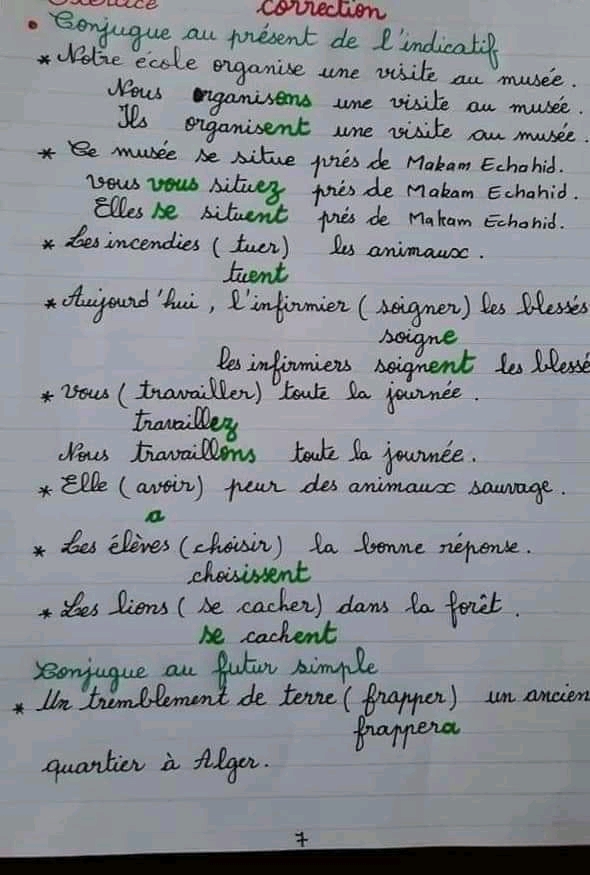 Exercice correction
• Conjugue au présent de l'indicatif
* Notre école organise une visite au musée.
Nous organisons une visite au musée.
Ils organisent une visite au musée.
* Ce musée se situe prés de Makam Echahid.
Vous vous situez prés de Makam Echahid.
Elles se situent prés de Makam Echahid.
* Les incendies (tuer) les animaux.
tuent
* Aujourd'hui, l'infirmier (soigner) les blessés
soigne
les infirmiers soignent les blessé
* Vous (travailler) toute la journée.
travaillez
Nous travaillons toute la journée.
* Elle (avoir) peur des animaux sauvage.
a
* Les élèves (choisir) la bonne réponse.
choisissent
* Les lions (se cacher) dans la forêt.
se cachent
Conjugue au futur simple
* Un tremblement de terre (frapper) un ancien
frappera
quartier à Alger.
7